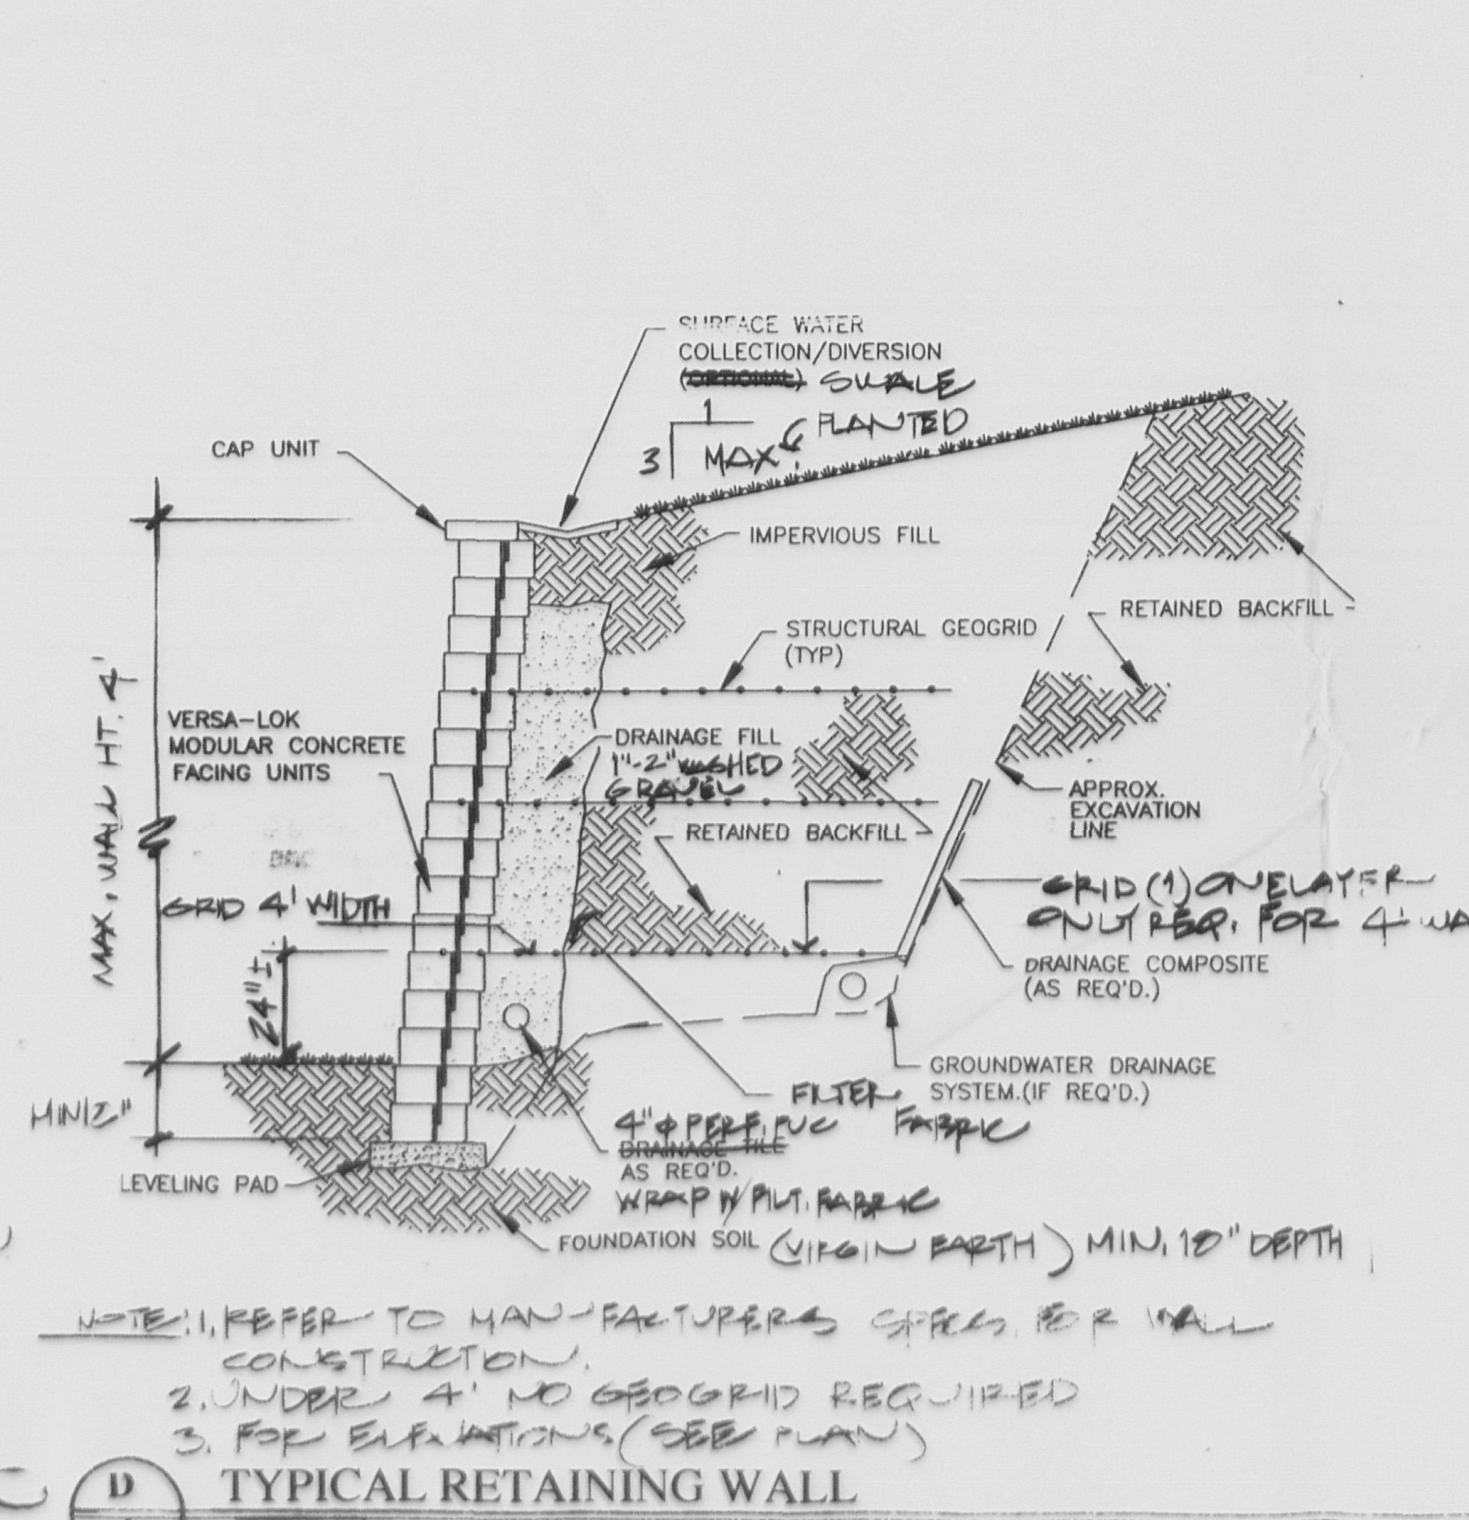 SURFACE WATER
COLLECTION/DIVERSION
(OPTIONAL) SWALE
1
3 MAX PLANTED
CAP UNIT
IMPERVIOUS FILL
RETAINED BACKFILL
STRUCTURAL GEOGRID
(TYP)
MAX. WALL HT. 4'
VERSA-LOK
MODULAR CONCRETE
FACING UNITS
DRAINAGE FILL
1"-2" WASHED
GRAVEL
APPROX.
EXCAVATION
LINE
RETAINED BACKFILL
GRID 4' WIDTH
GRID (1) ONE LAYER
ONLY REQ. FOR 4' WA
DRAINAGE COMPOSITE
(AS REQ'D.)
24" ±
GROUNDWATER DRAINAGE
SYSTEM.(IF REQ'D.)
FILTER
FABRIC
MIN
4" ϕ PERF. PVC
DRAINAGE TILE
AS REQ'D.
WRAP W/ FILT. FABRIC
LEVELING PAD
FOUNDATION SOIL (VIRGIN EARTH) MIN. " DEPTH
NOTE: 1. REFER TO MANUFACTURERS SPECS. FOR WALL
CONSTRUCTION.
2. UNDER 4' NO GEOGRID REQUIRED
3. FOR ELEVATIONS (SEE PLAN)
D
TYPICAL RETAINING WALL